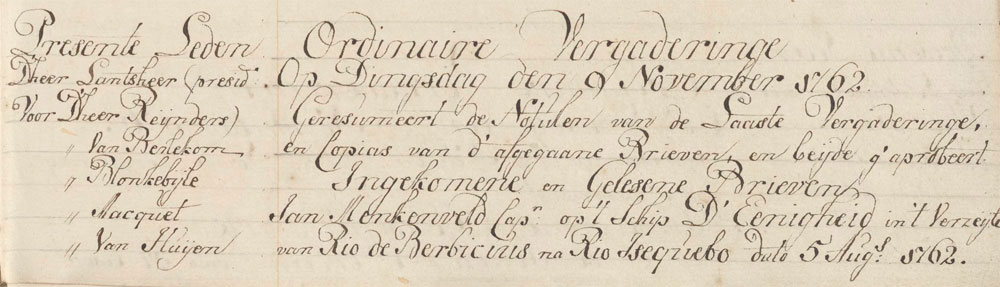 Presente Leden
Dheer Lantsheer (presid:
Voor D'heer Reijnders)
" Van Berlekom
" Blonkebijle
" Macquet
" Van Huijen
Ordinaire Vergaderinge
Op Dingsdag den 9 November 1762.
Geresumeert de Notulen van de Laaste Vergaderinge,
en Copias van d' afgegaane Brieven, en beijde g'aprobeert
Ingekomene en Gelesene Brieven
Jan Menkenveld Capn op 't Schip D' Eenigheid in 't Verzeijle
van Rio de Berbicius na Rio Isequebo dato 5 Augs 1762.